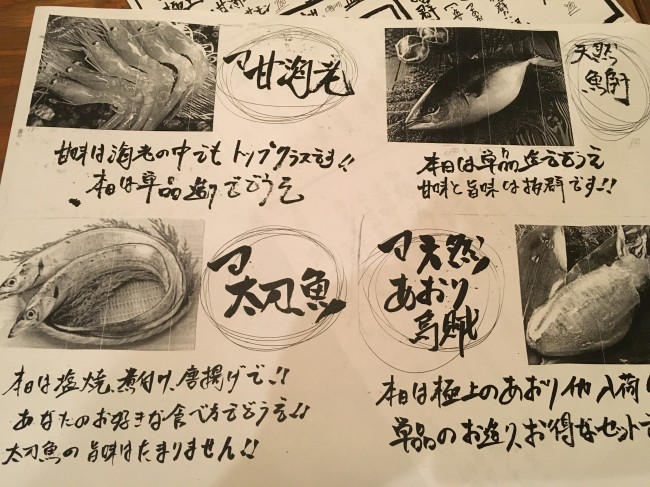 甘海老
甘味は海老の中でも トップクラスです!!
本日は単品造りでどうぞ
天然
鰤
本日は単品造でどうぞ
甘味と旨味は抜群です!!
太刀魚
本日は塩焼、煮付け、唐揚げで!!
あなたのお好きな食べ方でどうぞ!!
太刀魚の旨味はたまりません!!
天然
あおり
烏賊
本日は極上のあおりイカ入荷
単品のお造り、お得なセットで